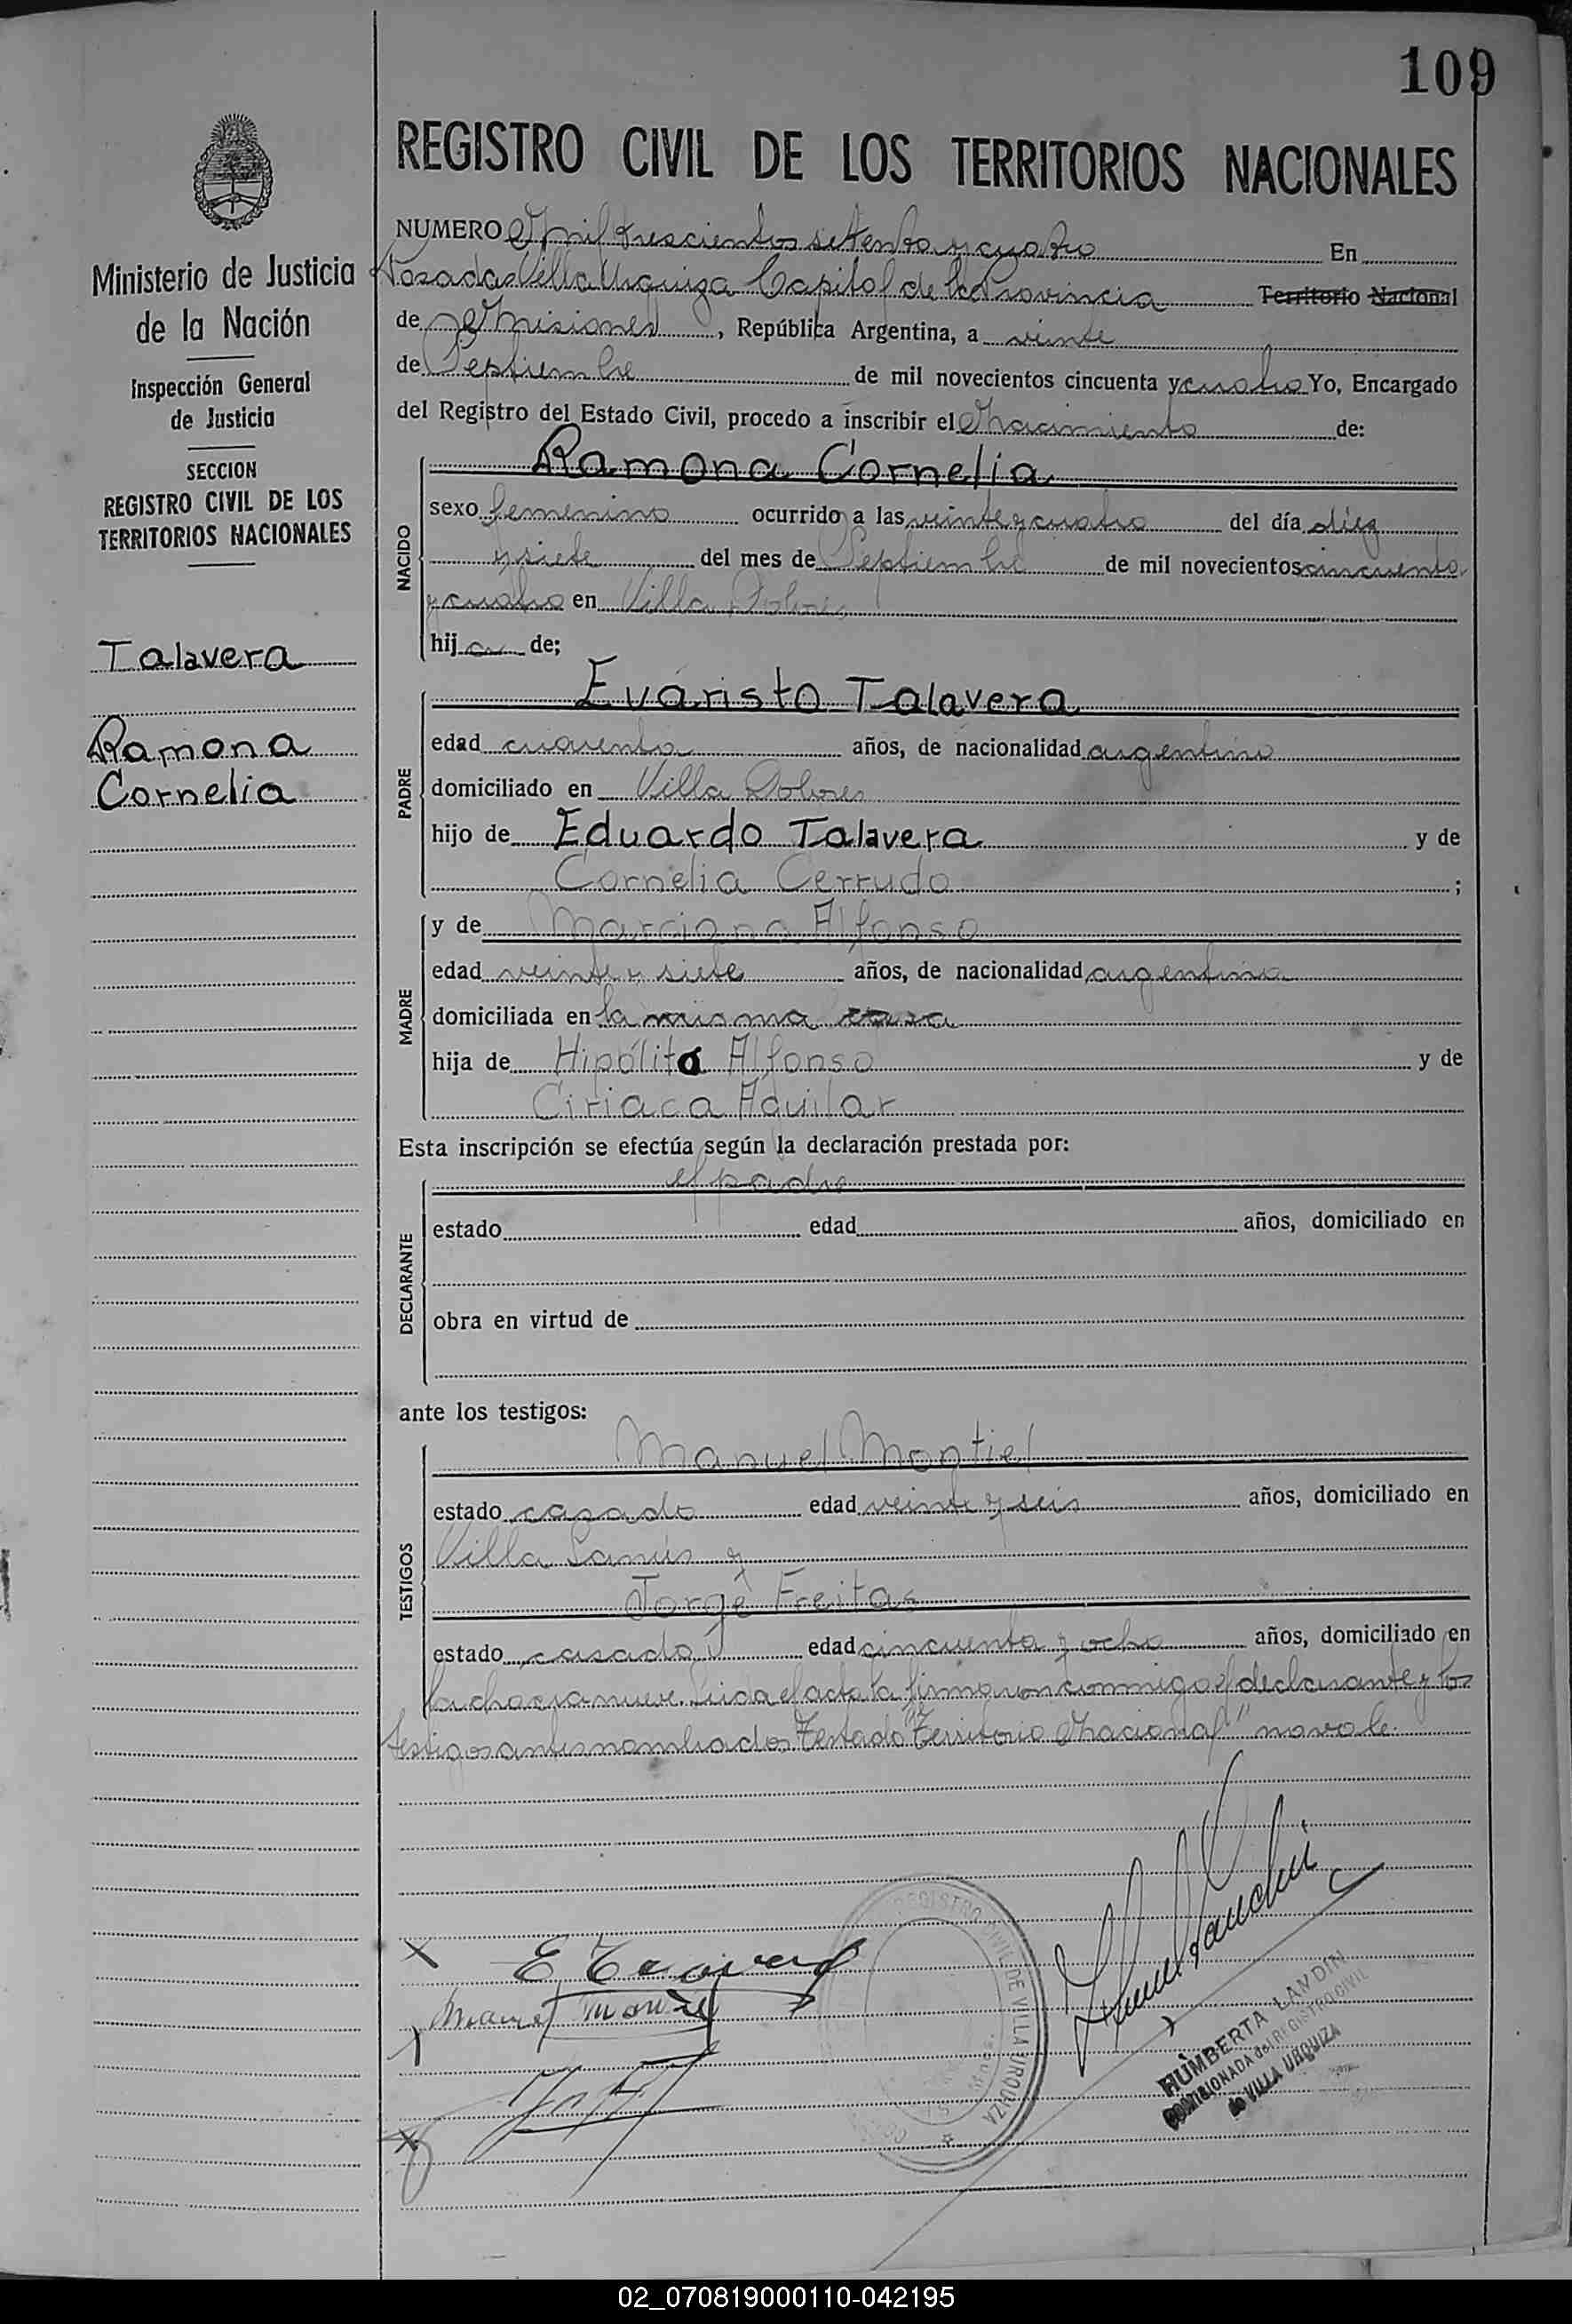 109
REGISTRO CIVIL DE LOS TERRITORIOS NACIONALES
Ministerio de Justicia
de la Nación
Inspección General
de Justicia
SECCION
REGISTRO CIVIL DE LOS
TERRITORIOS NACIONALES
Talavera
Ramona
Cornelia
NUMERO Mil trescientos setenta y cuatro En
Posadas Villa Urquiza Capital de la Provincia Territorio Nacional
de Misiones, República Argentina, a veinte
de Septiembre de mil novecientos cincuenta y cuatro Yo, Encargado
del Registro del Estado Civil, procedo a inscribir el Nacimiento de:
NACIDO
Ramona Cornelia
sexo femenino ocurrido a las veinte y cuatro del día diez
y siete del mes de Septiembre de mil novecientos cincuenta
y cuatro en Villa Dolores
hija de;
PADRE
Evaristo Talavera
edad cuarenta años, de nacionalidad argentino
domiciliado en Villa Dolores
hijo de Eduardo Talavera y de
Cornelia Cerrudo ;
MADRE
y de Marciana Alfonso
edad veinte y siete años, de nacionalidad argentina
domiciliada en la misma casa
hija de Hipólito Alfonso y de
Ciriaca Aguilar
Esta inscripción se efectúa según la declaración prestada por:
DECLARANTE
el padre
estado edad años, domiciliado en
obra en virtud de
ante los testigos:
TESTIGOS
Manuel Montiel
estado casado edad veinte y seis años, domiciliado en
Villa Lanús y
Jorge Freitas
estado casado edad cincuenta y ocho años, domiciliado en
la chacra nueve. Leida el acta la firmaron conmigo el declarante y los
testigos antes nombrados. Testado "Territorio Nacional" no vale.
E Talavera
Manuel Montiel
REGISTRO CIVIL DE VILLA URQUIZA
HUMBERTA LANDIN
COMISIONADA del REGISTRO CIVIL
de VILLA URQUIZA
02_070819000110-042195